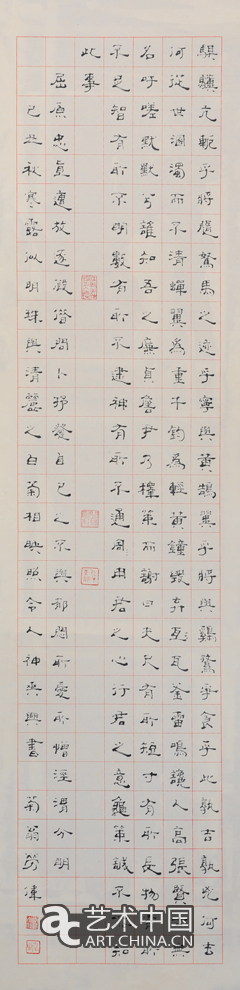 騏驥亢軛乎將隨駑馬之迹乎寧與黃鵠翼乎將與鷄鶩爭食乎此孰吉孰兇何去
何從世溷濁而不清蟬翼為重千鈞為輕黃鐘毀弃瓦釜雷鳴讒人高張賢無
名吁嗟默默兮誰知吾之廉貞詹尹乃釋策而謝曰夫尺有所短寸有所長物
不足智有所不明數有所不逮神有所不通用君之心行君之意龜策誠不知
此事
屈原忠貞遭放逐假借問卜抒發自己之不與邪所愛所憎涇渭分明
己丑秋寒露似明珠與清麗之白菊相映照令人神爽興書 菊翁勞
艺术中国
ART.CHINA.CN